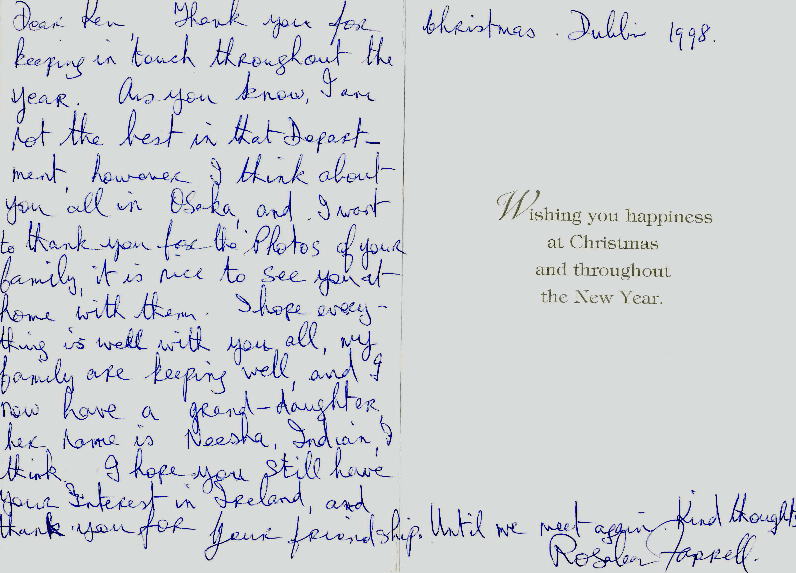 Dear Ken, Thank you for
keeping in touch throughout the
year. As you know, I am
not the best in that Depart-
ment, however I think about
you all in Osaka, and I want
to thank you for the Photos of your
family, it is nice to see you at
home with them. I hope every-
thing is well with you all, my
family are keeping well, and I
now have a grand-daughter,
her name is Neesha, Indian, I
think. I hope you still have
your Interest in Ireland, and
thank you for your friendship. Until we meet again. Kind thoughts
Farrell.
Christmas. Dublin 1998.
Wishing you happiness
at Christmas
and throughout
the New Year.